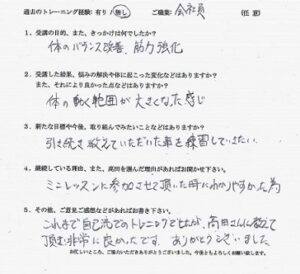 過去のトレーニング経験:有り・無し ご職業:会社員 (任 意)
1. 受講の目的、また、きっかけは何でしたか?
体のバランス改善、筋力強化
2. 受講した結果、悩みの解決や体に起こった変化などはありますか?
また、それにより良かった点などはありますか?
体の動く範囲が大きくなった感じ
3. 新たな目標や今後、取り組んでみたいことなどはありますか?
引き続き教えていただいた事を練習していきたい
4. 継続している理由、また、高田を選んだ理由があればお聞かせ下さい。
ミニレッスンに参加させて頂いた時にわかりやすかった為
5. その他、ご意見ご感想などがあればお書き下さい。
これまで自己流でのトレーニングでしたが、高田さんに教えて
頂き非常に良かったです。ありがとうございました
お忙しいところ、ご協力いただきありがとうございます。今後ともよろしくお願い致します。